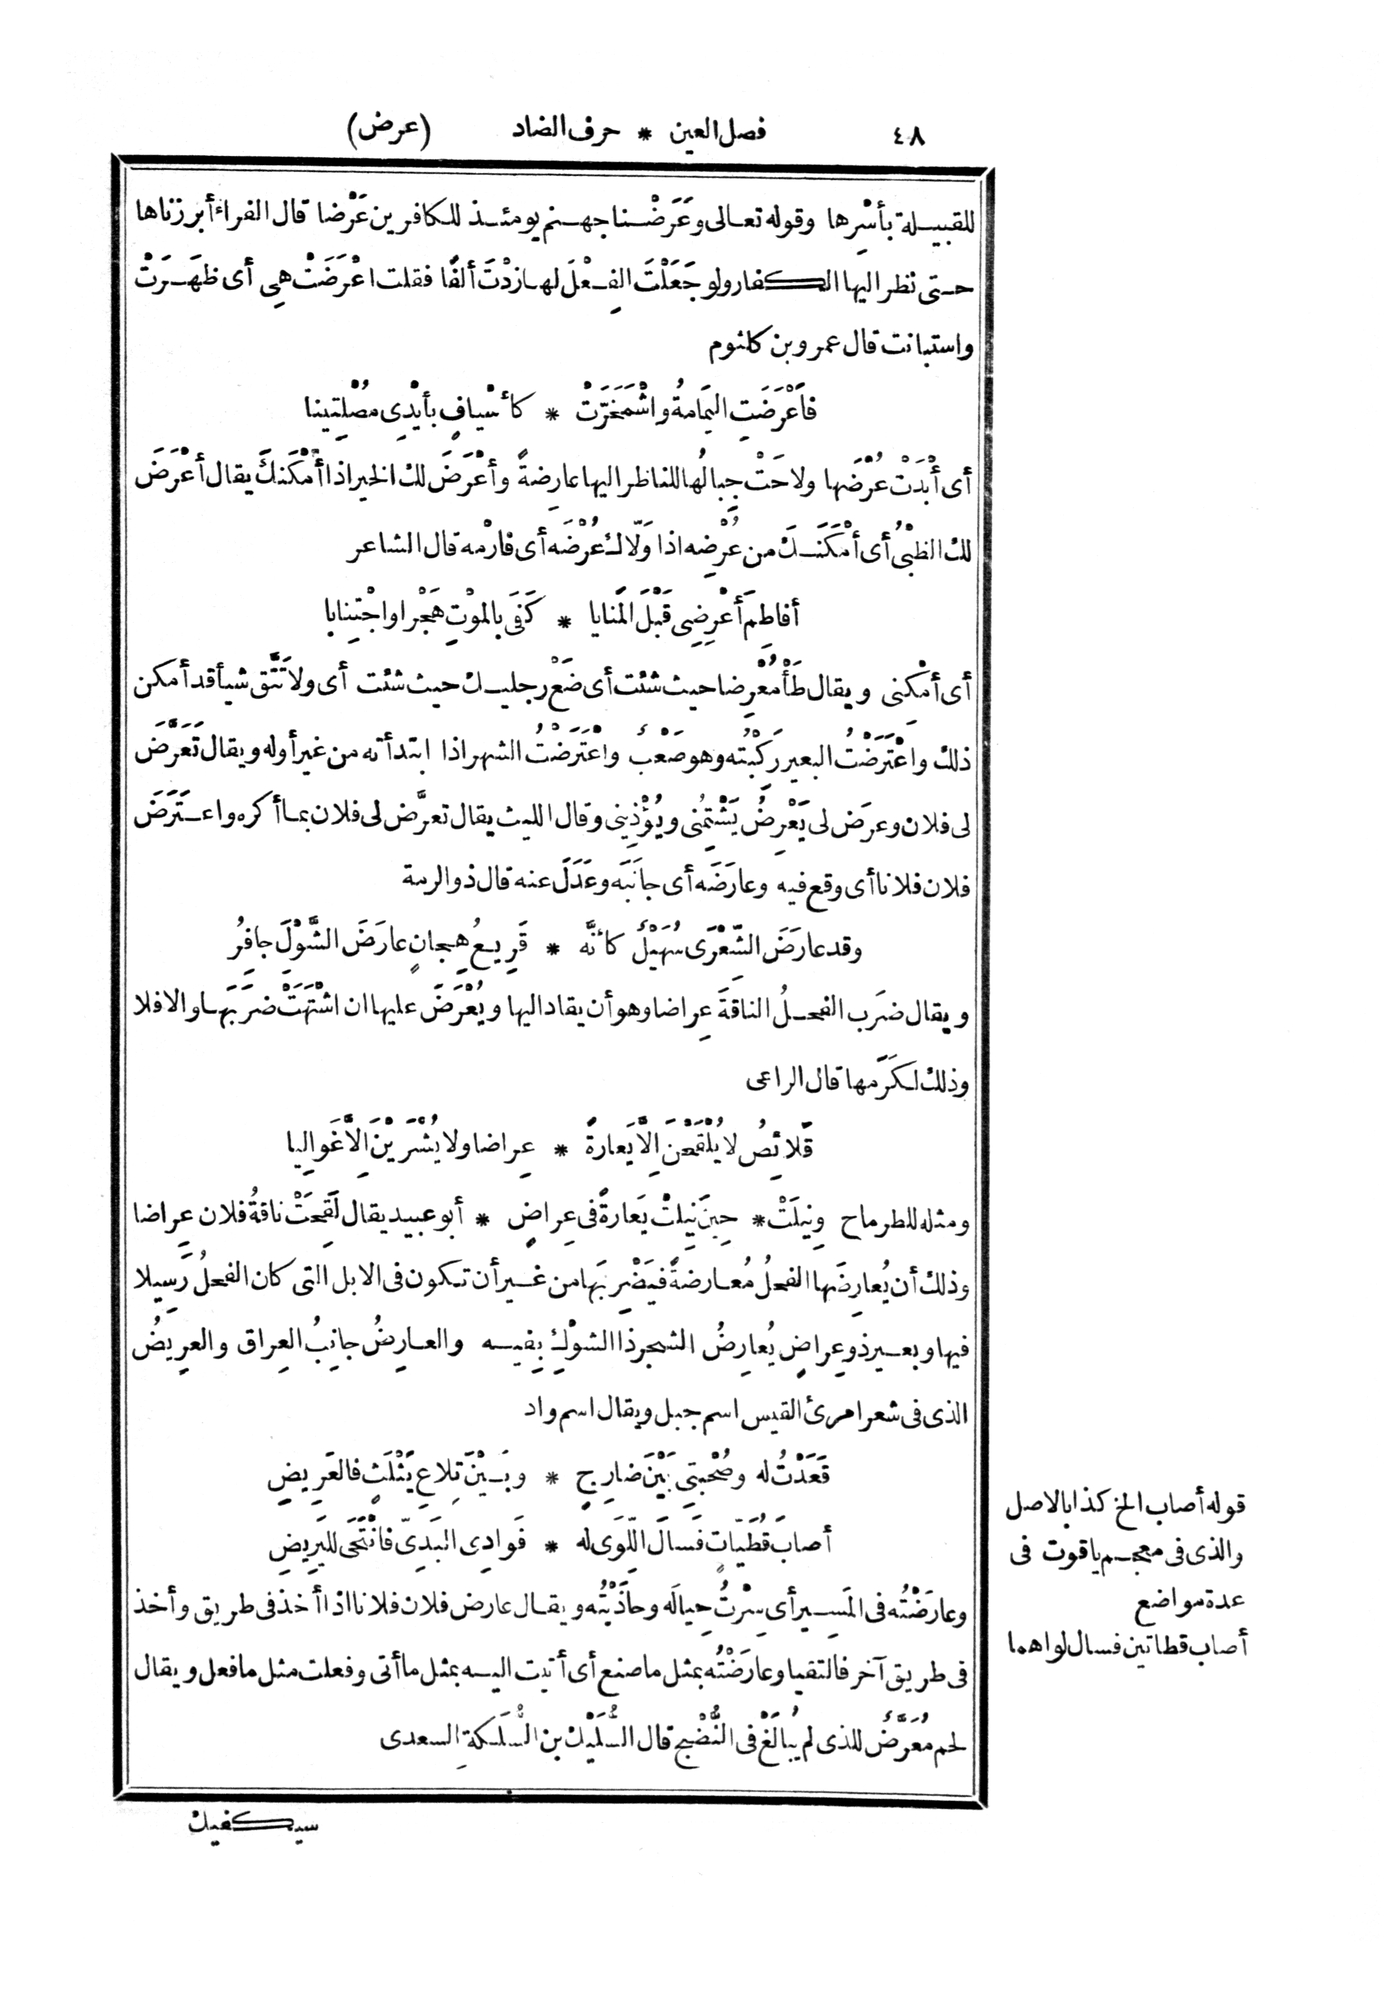 ٤٨
فصل العين * حرف الضاد
(عرض)
للقبيلة بأسْرِها وقوله تعالى وعَرَضْنا جهنم يومئذ للكافرين عَرْضا قال الفراء أبرزناها
حتى نظر اليها الكفار ولو جَعَلْتَ الفِعْلَ لها زدْتَ ألفًا فقلت اعْرَضَتْ هِي أى ظهَرَتْ
واستبانت قال عمرو بن كلثوم
فأَعْرَضَتِ اليَمامةُ واشْمَخَرّتْ * كأسْيافٍ بأيْدِى مُصْلِتِينا
أى أَبْدَتْ عُرْضَها ولاحَتْ جِبالُها للناظر اليها عارِضةً وأعْرَضَ لك الخير اذا أَمْكَنكَ يقال أعْرَضَ
لك الظبْىُ أى أمْكَنَكَ من عُرْضِه اذا وَلّاك عُرْضَه أى فارْمه قال الشاعر
أفاطِمَ أَعْرِضِى قَبْلَ المَنايا * كَفَى بالموْتِ هَجْرا واجْتِنابا
أى أمْكِنى ويقال طَأْ مُعْرِضا حيث شئت أى ضَعْ رجليك حيث شئت أى ولا تَتَّقِ شيأ قد أمكن
ذلك واعْتَرَضْتُ البعير رَكِبْتُه وهو صَعْبٌ واعْتَرَضْتُ الشهر اذا ابتدأته من غير أوله ويقال تَعَرَّضَ
لى فلان وعرَض لى يَعْرِضُ يَشْتِمُنى ويُؤْذِينى وقال الليث يقال تعرَّض لى فلان بما أكره واعتَرَضَ
فلان فلانا أى وقع فيه وعارَضَه أى جانَبَه وعَدَلَ عنه قال ذو الرمة
وقد عارَضَ الشِّعْرَى سُهَيْلٌ كأنَّه * قَرِيعُ هِجانٍ عارَضَ الشَّوْلَ جافِرُ
ويقال ضرَب الفحلُ الناقةَ عِراضا وهو أن يقاد اليها ويُعْرَضَ عليها ان اشْتَهَتْ ضرَبَها والا فلا
وذلك لكَرَمها قال الراعى
قَلائِصُ لا يُلْقَحْنَ إلَّا يَعارةً * عِراضا ولا يُشْرَيْنَ إلَّا غَوالِيا
ومثله للطرماح ونِيلَتْ * حِينَ نِيلتْ يَعارةً فى عِراضٍ * أبو عبيد يقال لَقِحَتْ ناقةُ فلان عِراضا
وذلك أن يُعارِضَها الفحلُ مُعارضةً فيَضْرِبَها من غير أن تكون فى الابل التى كان الفحلُ رَسِيلا
فيها وبعير ذو عِراضٍ يُعارِضُ الشجر ذا الشوْكِ بِفِيه والعارِضُ جانِبُ العِراق والعرِيضُ
الذى فى شعر امرئ القيس اسم جبل ويقال اسم واد
قَعَدْتُ له وصُحْبتِى بَيْنَ ضارِجٍ * وبَيْنَ تِلاعِ يَثْلَثٍ فالعَرِيضِ
أصابَ قُطَيّاتٍ فَسالَ اللِّوَى له * فَوادِى البَدِىِّ فانْتَحَى لليَرِيضِ
وعارَضْتُه فى المَسِير أى سِرْتُ حِيالَه وحاذَيْتُه ويقال عارض فلان فلانا اذا أخذ فى طريق وأخذ
فى طريق آخر فالتقيا وعارَضْتُه بمثل ما صنع أى أتيت اليه بمثل ما أتى وفعلت مثل ما فعل ويقال
لحم مُعَرَّضٌ للذى لم يُبالَغْ فى النُّضْجِ قال السُّلَيْك بن السُّلَكةِ السعدى
قوله أصاب الخ كذا بالاصل
والذى فى معجم ياقوت فى
عدة مواضع
أصاب قطاتين فسال لواهما
سيكفيك